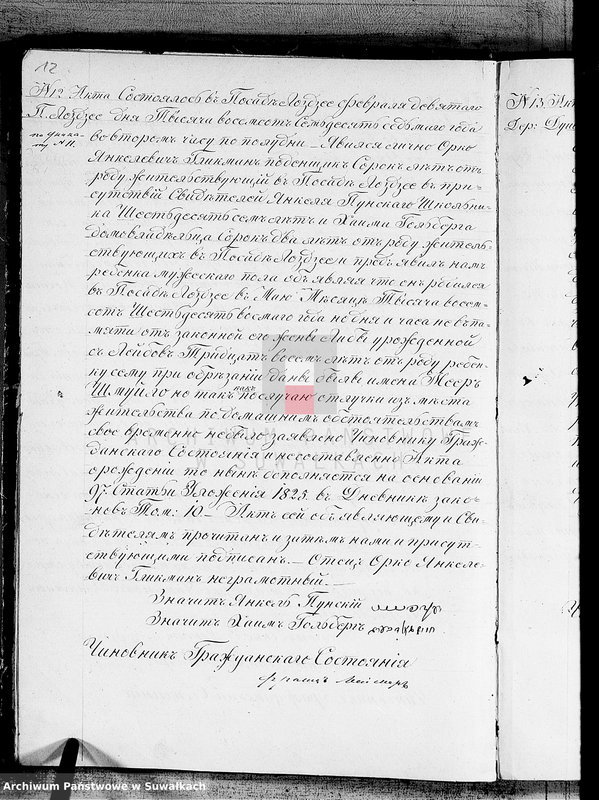 12
№12 Акта Состоялось въ Посадѣ Лоздзее февраля девятаго
П. Лоздзее дня Тысяча восемсотъ Семдесятъ седьмаго года
во второмъ часу по полудни – Явился лично Орко
Янкелевичъ Гликманъ поденщикъ Сорокъ лѣтъ отъ
роду жительствующій въ Посадѣ Лоздзее въ при-
сутствіи Свидѣтелей Янкеля Пунскаго Школьни-
ка Шестьдесятъ семь лѣтъ и Хаима Гольберга
домовладѣльца Сорокъ два лѣтъ отъ роду житель-
ствующихъ въ Посадѣ Лоздзее и предъявилъ намъ
ребенка мужескаго пола объявляя что онъ родился
въ Посадѣ Лоздзее въ Маю Мѣсяцѣ Тысяча восем-
сотъ Шестьдесятъ восмаго года но дня и часа не въ па-
мяти отъ законной его жены Либы урожденной
съ Лейбовъ Тридцатъ восемъ лѣтъ отъ роду ребен-
ку сему при обрѣзаніи даны были имена Мееръ
Шмуйло но такъ какъ по случаю отлучки изъ мѣста
жительства по домашнимъ обстоятельствамъ
свое временно не было заявлено Чиновнику Граж-
данскаго Состоянія и несоставленъ Акта
о рожденіи то нынѣ дополняется на основаніи
97. Статьи Уложенія 1825 въ Дневникѣ зако-
новъ Том: 10 – Актъ сей объявляющему и Сви-
дѣтелямъ прочитанъ и затѣмъ нами и присут-
ствующими подписанъ – Отецъ Орко Янкеле-
вичъ Гликманъ неграмотный –
Значитъ Янкель Пунскій
Значитъ Хаимъ Гольбергъ
Чиновникъ Гражданскаго Состоянія
№13 Акт
Дер:
Archiwum Państwowe w Suwałkach